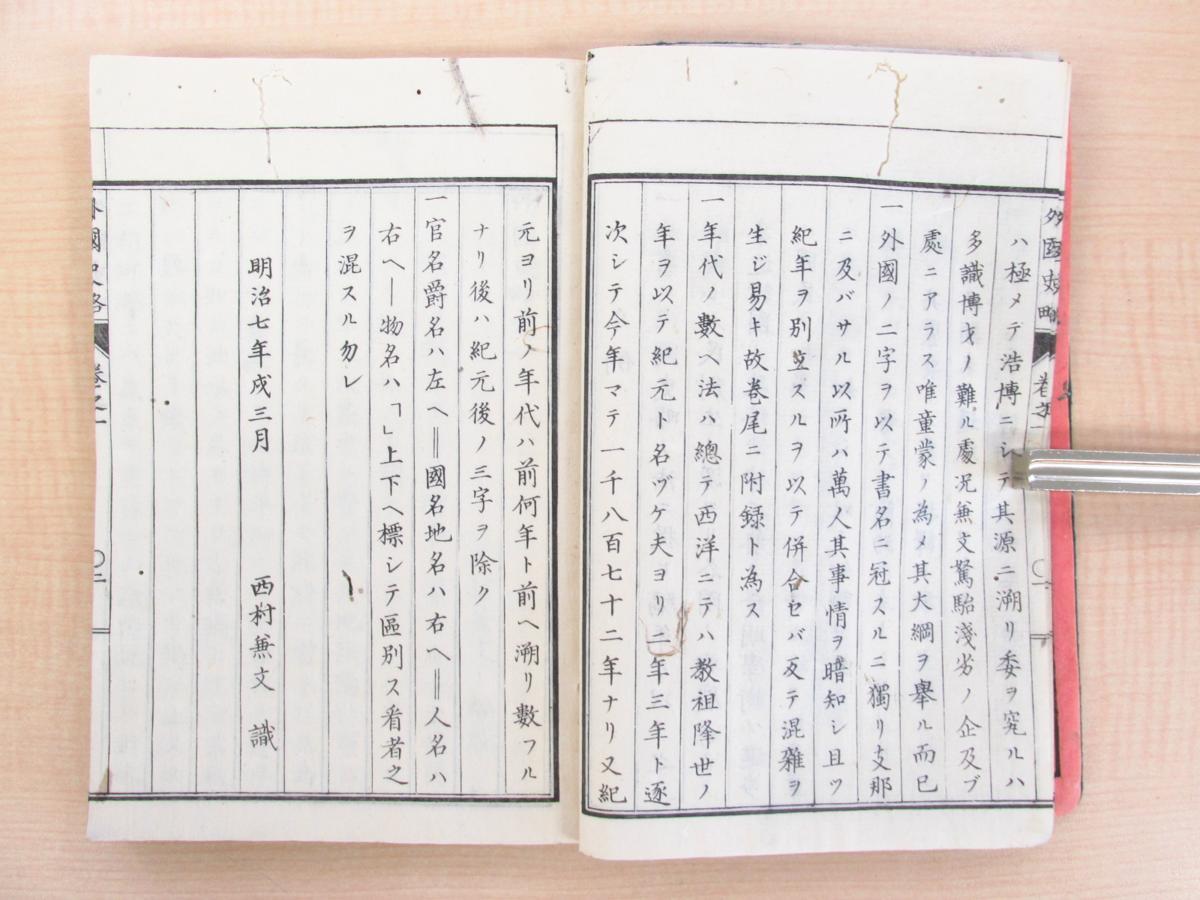 外國史略
卷之一
ハ極メテ浩博ニシテ其源ニ溯リ委ヲ究ルハ
多識博才ノ難ル處況兼文駑駘淺劣ノ企及ブ
處ニアラス唯童蒙ノ為メ其大綱ヲ舉ル而已
一外國ノ二字ヲ以テ書名ニ冠スルニ獨リ支那
ニ及バサル以所ハ萬人其事情ヲ暗知シ且ツ
紀年ヲ別立スルヲ以テ併合セバ反テ混雜ヲ
生ジ易キ故卷尾ニ附録ト為ス
一年代ノ數ヘ法ハ總テ西洋ニテハ教祖降世ノ
年ヲ以テ紀元ト名ヅケ夫ヨリ二年三年ト逐
次シテ今年マテ一千八百七十二年ナリ又紀
元ヨリ前ノ年代ハ前何年ト前ヘ溯リ數フル
ナリ後ハ紀元後ノ三字ヲ除ク
一官名爵名ハ左ヘ‖國名地名ハ右ヘ‖人名ハ
右ヘ｜物名ハ「」上下ヘ標シテ區別ス看者之
ヲ混スル勿レ
明治七年戌三月 西村兼文 識
外國史略 卷之一 〇二